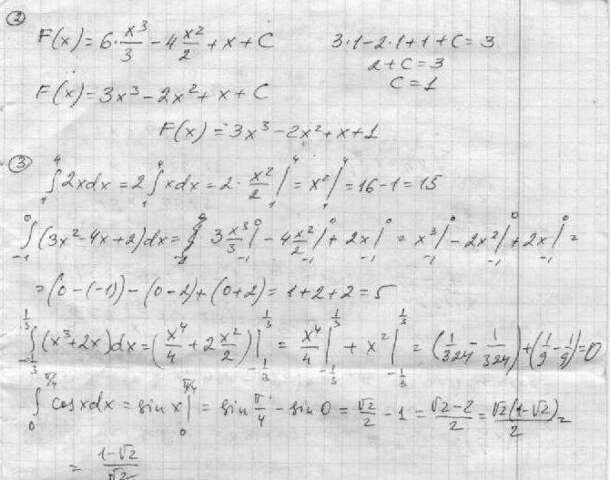 ② F(x) = 6·x³/3 − 4 x²/2 + x + C 3·1−2·1+1+C=3
2+C=3
F(x) = 3x³ − 2x² + x + C C=1
F(x) = 3x³ − 2x² + x + 1
③ ∫₁⁴ 2xdx = 2∫₁⁴ xdx = 2·x²/2 |₁⁴ = x² |₁⁴ = 16−1 = 15
∫₋₁⁰ (3x²−4x+2)dx = 3 x³/3 |₋₁⁰ − 4 x²/2 |₋₁⁰ + 2x |₋₁⁰ = x³ |₋₁⁰ − 2x² |₋₁⁰ + 2x |₋₁⁰ =
= (0−(−1)) − (0−2) + (0+2) = 1+2+2 = 5
∫_{−1/3}^{1/3} (x³+2x)dx = (x⁴/4 + 2 x²/2) |_{−1/3}^{1/3} = x⁴/4 |_{−1/3}^{1/3} + x² |_{−1/3}^{1/3} = (1/324 − 1/324) + (1/9 − 1/9) = 0
∫₀^{π/4} cosxdx = sin x |₀^{π/4} = sin π/4 − sin 0 = √2/2 − 1 = (√2−2)/2 = √2(1−√2)/2 =
= (1−√2)/√2